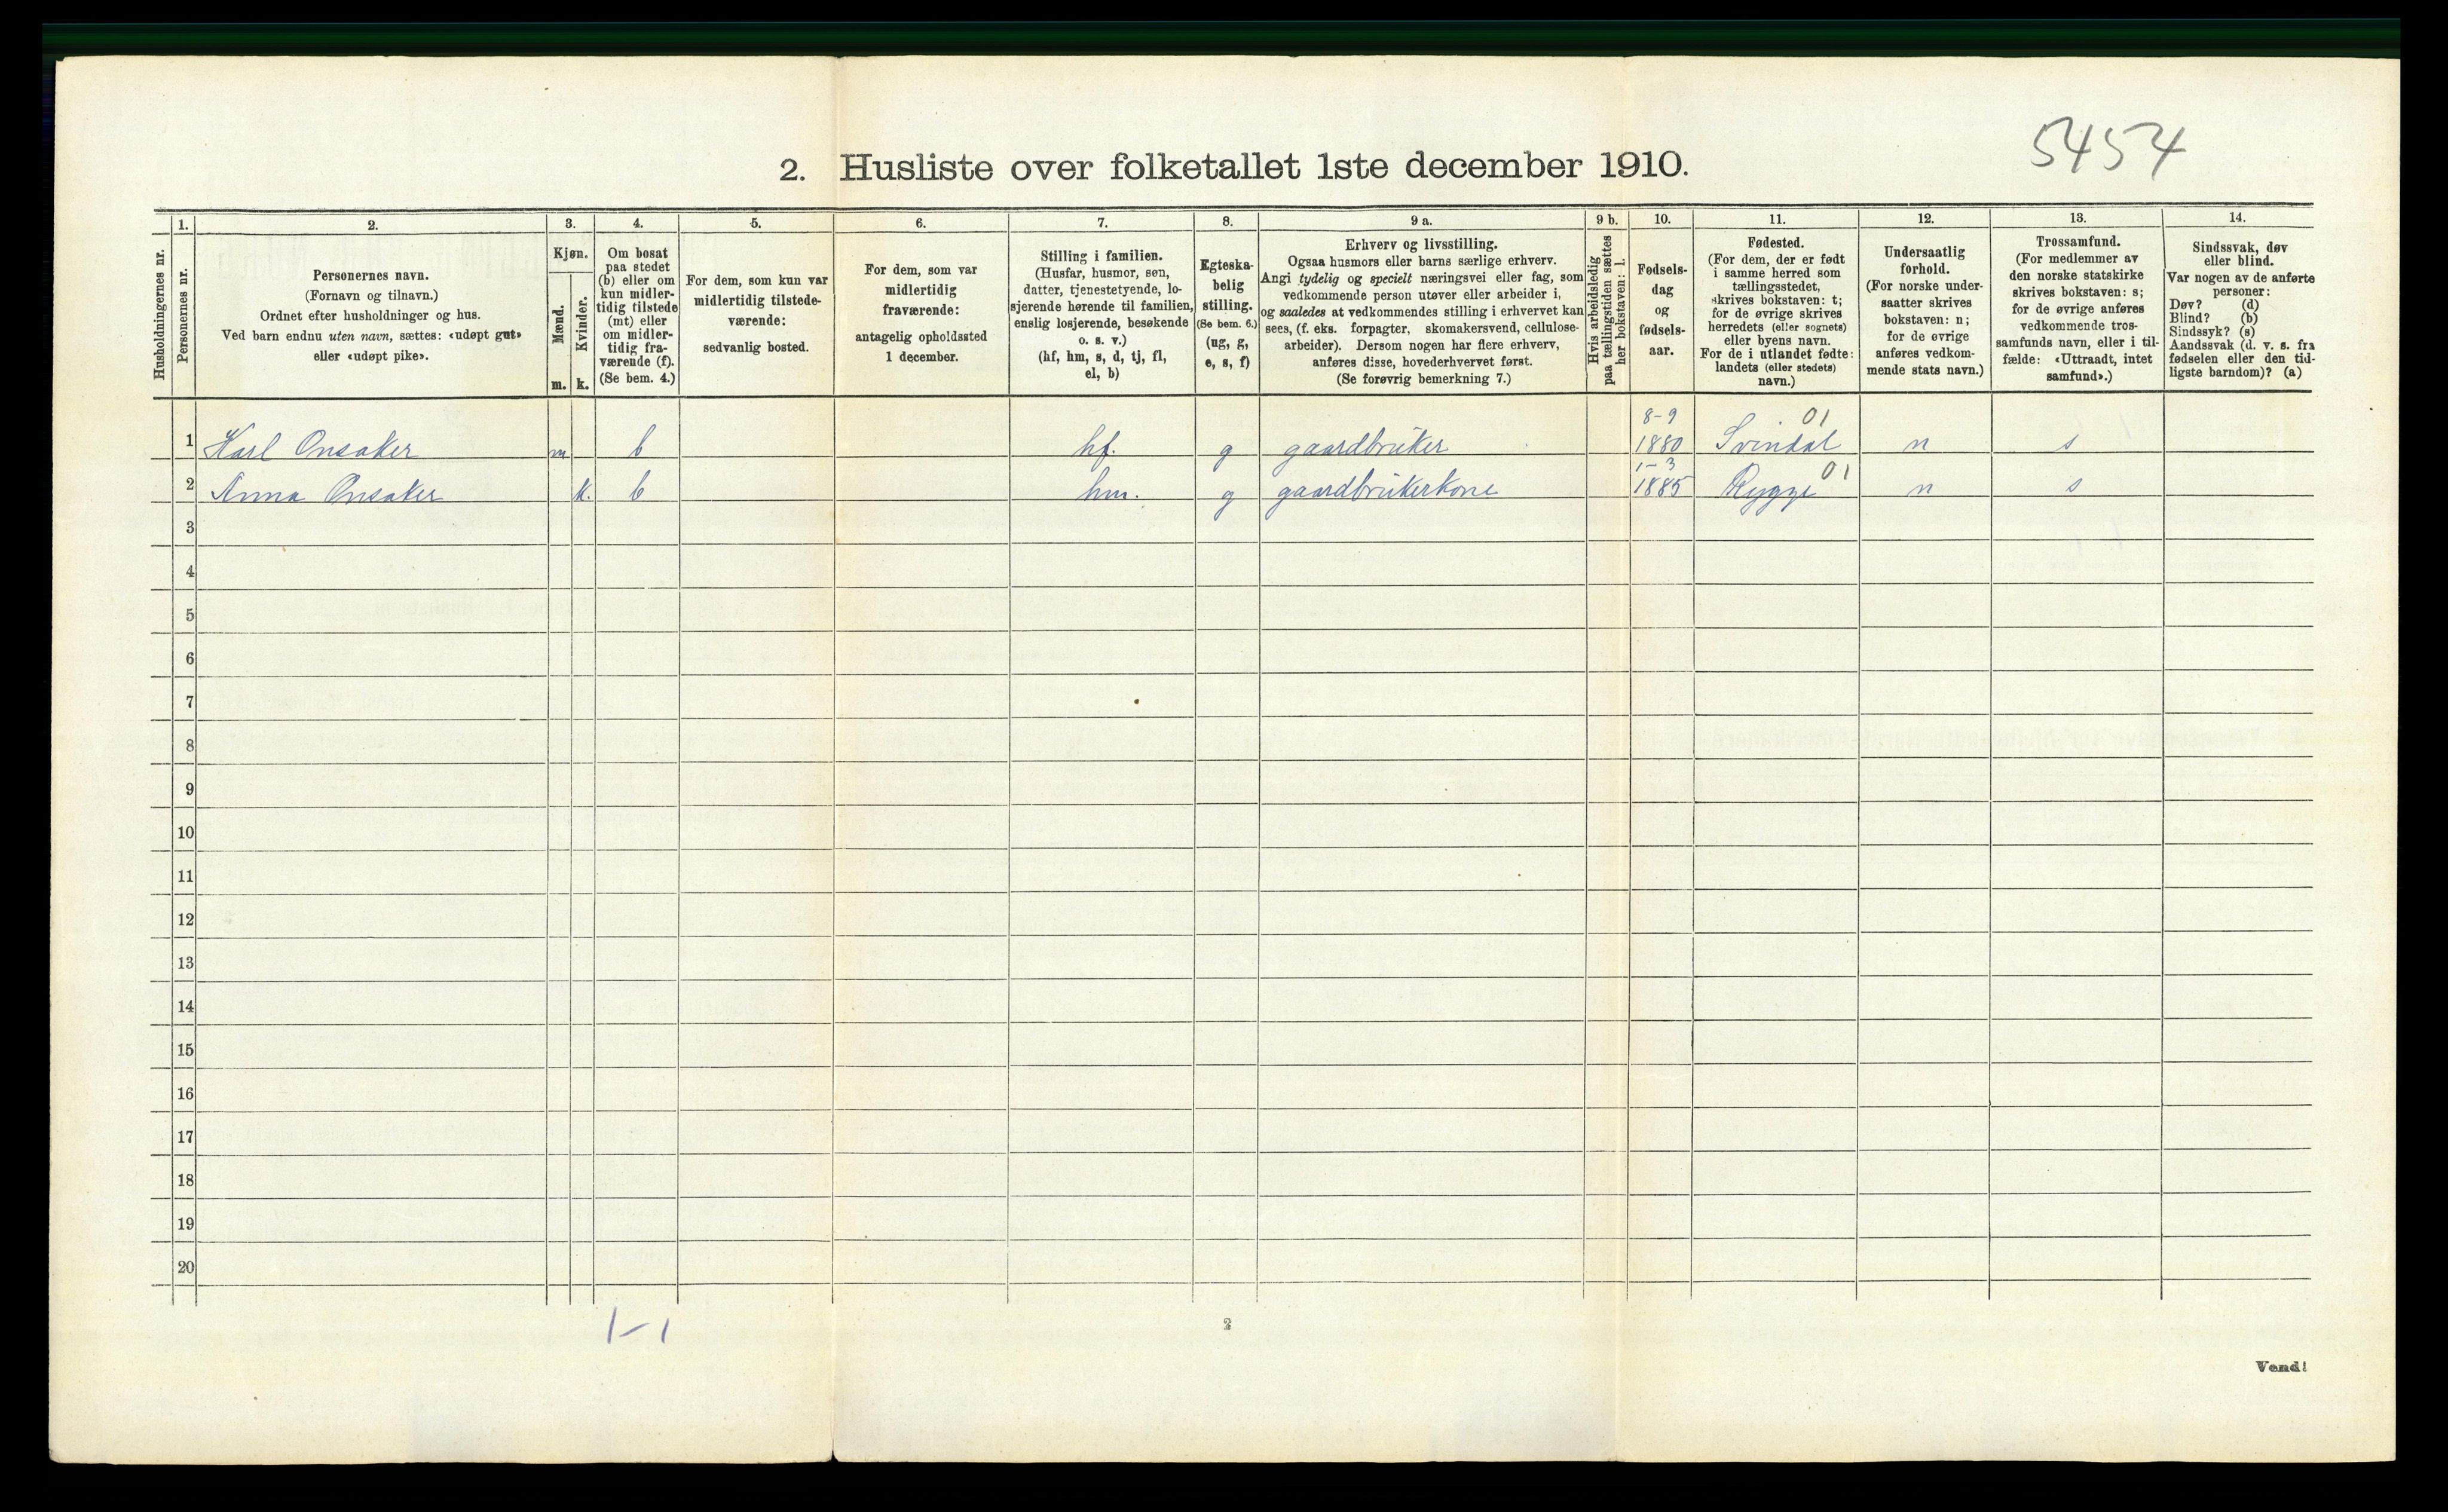 5454
2. Husliste over folketallet 1ste december 1910.
Husholdningernes nr.
1.
Personernes nr.
2.
Personernes navn.
(Fornavn og tilnavn.)
Ordnet efter husholdninger og hus.
Ved barn endnu uten navn, sættes: «udøpt gut»
eller «udøpt pike».
3.
Kjøn.
Mænd.
m.
Kvinder.
k.
4.
Om bosat
paa stedet
(b) eller om
kun midler-
tidig tilstede
(mt) eller
om midler-
tidig fra-
værende (f).
(Se bem. 4.)
5.
For dem, som kun var
midlertidig tilstede-
værende:
sedvanlig bosted.
6.
For dem, som var
midlertidig
fraværende:
antagelig opholdssted
1 december.
7.
Stilling i familien.
(Husfar, husmor, søn,
datter, tjenestetyende, lo-
sjerende hørende til familien,
enslig losjerende, besøkende
o. s. v.)
(hf, hm, s, d, tj, fl,
el, b)
8.
Egteska-
belig
stilling.
(Se bem. 6.)
(ug, g,
e, s, f)
9 a.
Erhverv og livsstilling.
Ogsaa husmors eller barns særlige erhverv.
Angi tydelig og specielt næringsvei eller fag, som
vedkommende person utøver eller arbeider i,
og saaledes at vedkommendes stilling i erhvervet kan
sees, (f. eks. forpagter, skomakersvend, cellulose-
arbeider). Dersom nogen har flere erhverv,
anføres disse, hovederhvervet først.
(Se forøvrig bemerkning 7.)
9 b.
Hvis arbeidsledig
paa tællingstiden sættes
her bokstaven: l.
10.
Fødsels-
dag
og
fødsels-
aar.
11.
Fødested.
(For dem, der er født
i samme herred som
tællingsstedet,
skrives bokstaven: t;
for de øvrige skrives
herredets (eller sognets)
eller byens navn.
For de i utlandet fødte:
landets (eller stedets)
navn.)
12.
Undersaatlig
forhold.
(For norske under-
saatter skrives
bokstaven: n;
for de øvrige
anføres vedkom-
mende stats navn.)
13.
Trossamfund.
(For medlemmer av
den norske statskirke
skrives bokstaven: s;
for de øvrige anføres
vedkommende tros-
samfunds navn, eller i til-
fælde: «Uttraadt, intet
samfund».)
14.
Sindssvak, døv
eller blind.
Var nogen av de anførte
personer:
Døv? (d)
Blind? (b)
Sindssyk? (s)
Aandssvak (d. v. s. fra
fødselen eller den tid-
ligste barndom)? (a)
8-9 01
1 Karl Onsaker m b hf. g gaardbruker 1880 Svindal n s
1-3 01
2 Anna Onsaker k. b hm. g gaardbrukerkone 1885 Rygge n s
3
4
5
6
7
8
9
10
11
12
13
14
15
16
17
18
19
20
1-1
2
Vend!